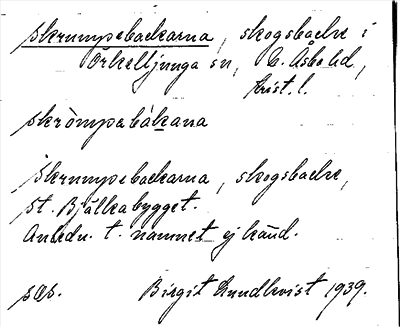 Skrumpebackarna, skogsbacke i
Örkelljunga sn, N. Åsbo hd,
Krist. l.
skròmpabákana
Skrumpebackarna, skogsbacke,
St. Bjälkabygget.
Anledn. t. namnet ej känd.
Birgit Lundkvist 1939.